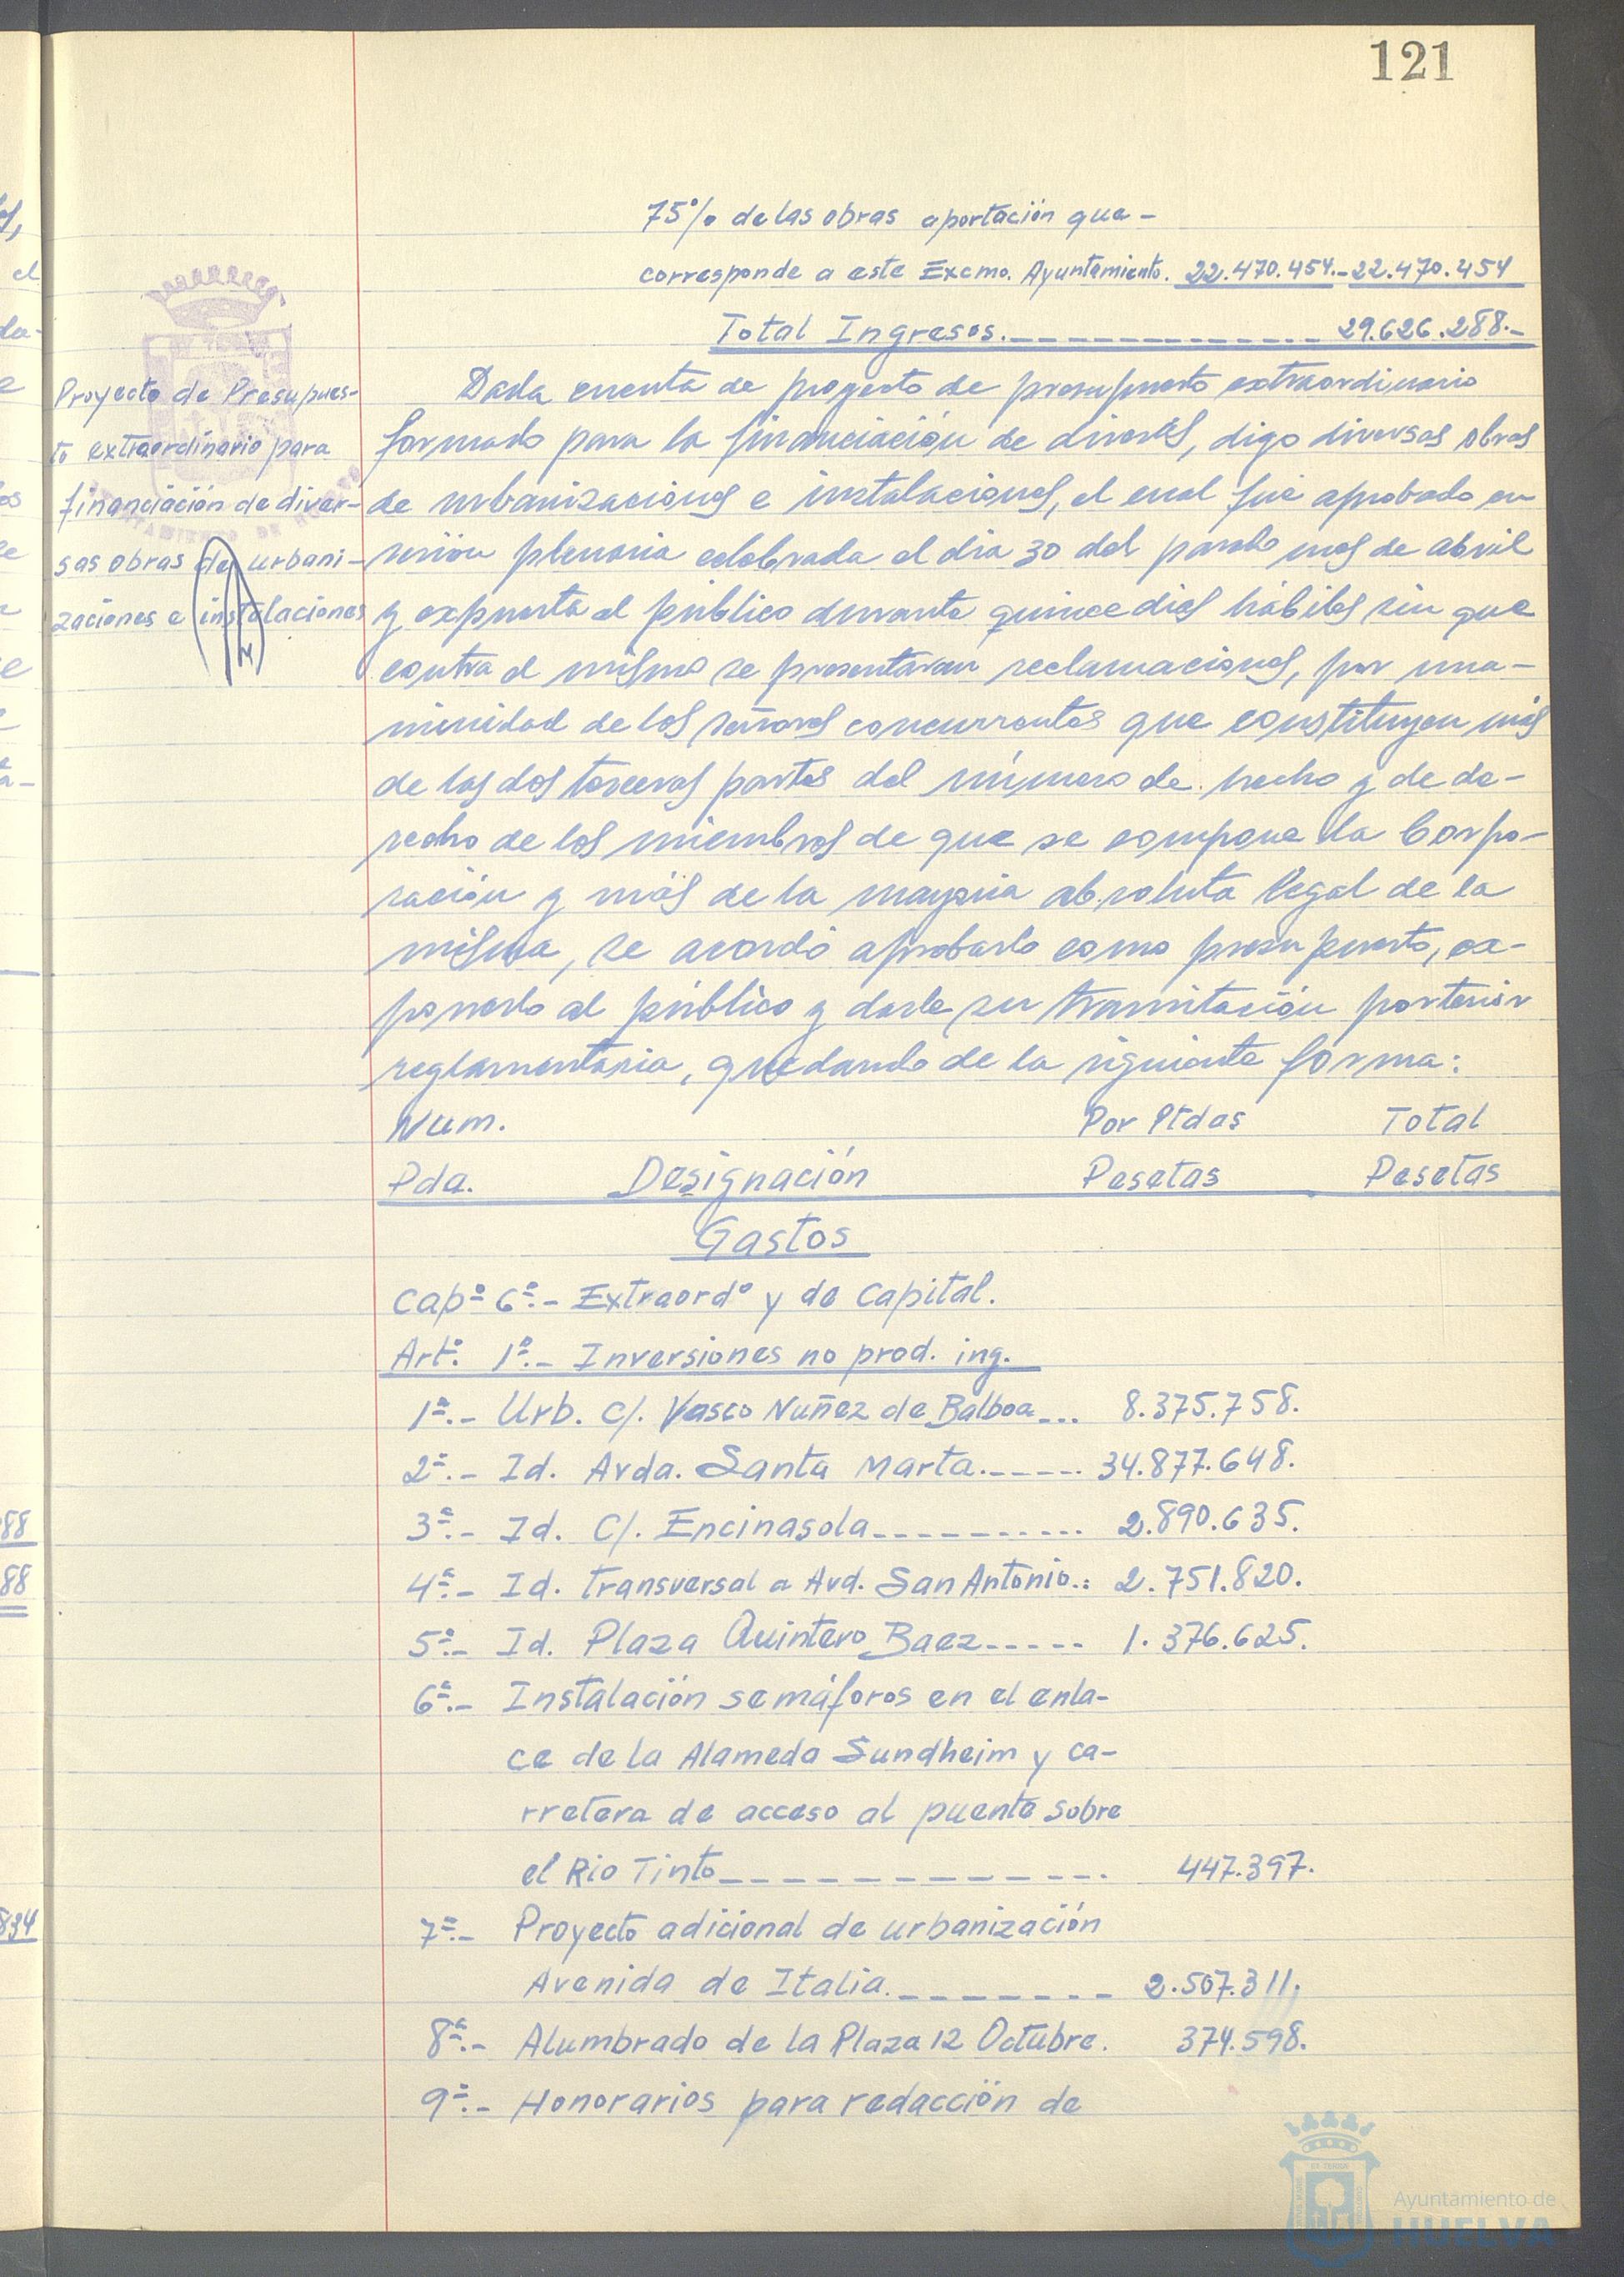 121
75% de las obras aportación que-
corresponde a este Excmo. Ayuntamiento. 22.470.454.- 22.470.454
Total Ingresos. 29.626.288.-
Proyecto de Presupues-
to extraordinario para
financiación de diver-
sas obras de urbani-
zaciones e instalaciones
Dada cuenta de proyecto de presupuesto extraordinario
formado para la financiación de diversas, digo diversas obras
de urbanizaciones e instalaciones, el cual fué aprobado en
sesión plenaria celebrada el dia 30 del pasado mes de abril
y expuesta al público durante quince dias hábiles sin que
contra el mismo se presentaran reclamaciones, por una-
nimidad de los señores concurrentes que constituyen más
de las dos terceras partes del número de hecho y de de-
recho de los miembros de que se compone la Corpo-
ración y más de la mayoria absoluta legal de la
misma, se acordó aprobarlo como presupuesto, ex-
ponerlo al público y darle su tramitación posterior
reglamentaria, quedando de la siguiente forma:
Num. Por Ptdas Total
Pda. Designación Pesetas Pesetas
Gastos
Capº 6º.- Extraordº y de Capital.
Artº. 1º.- Inversiones no prod. ing.
1ª.- Urb. C/. Vasco Nuñez de Balboa... 8.375.758.
2ª.- Id. Avda. Santa Marta. 34.877.648.
3ª.- Id. C/. Encinasola 2.890.635.
4ª.- Id. transversal a Avd. San Antonio.: 2.751.820.
5ª.- Id. Plaza Quintero Baez 1.376.625.
6ª.- Instalación semáforos en el enla-
ce de la Alameda Sundheim y ca-
rretera de acceso al puente sobre
el Rio Tinto 447.397.
7ª.- Proyecto adicional de urbanización
Avenida de Italia. 2.507.311.
8ª.- Alumbrado de la Plaza 12 Octubre. 374.598.
9ª.- Honorarios para redacción de
Ayuntamiento de
HUELVA